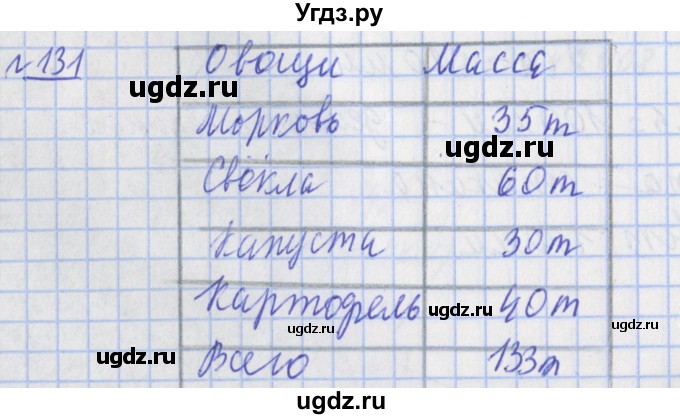 Угдз.ру
№131
Овощи Масса
ugdz.ru
Морковь 35т
ugdz.ru
Свёкла 60т
Капуста 30т
Картофель 40т
ugdz.ru ugdz.ru
ugdz.ru
Всего 133т
ugdz.ru